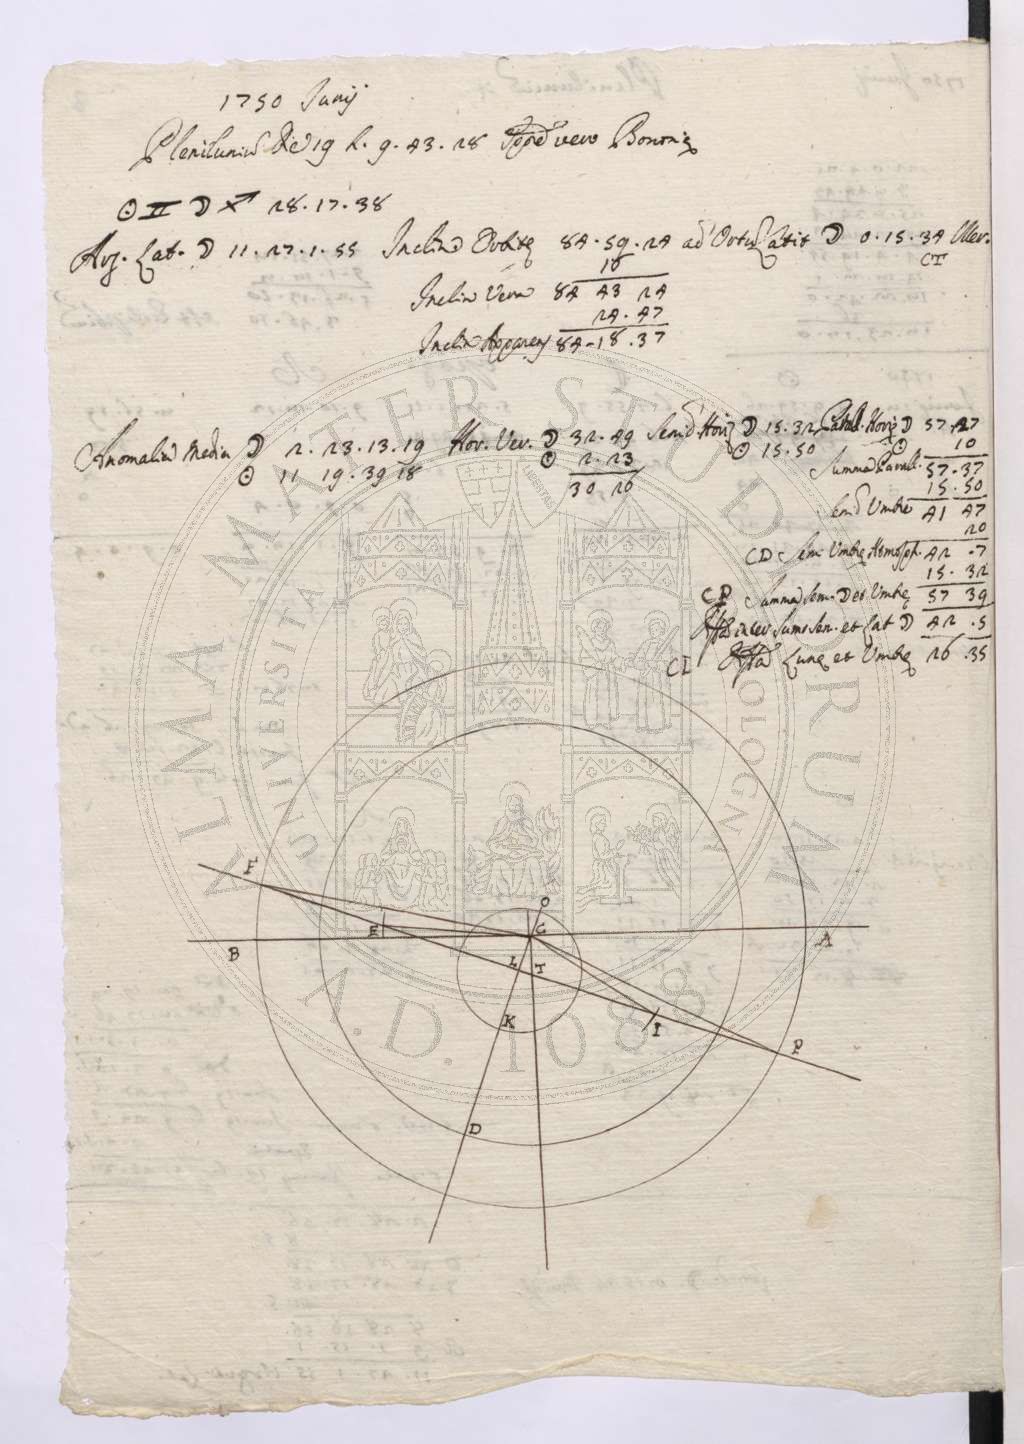 1750 Junij
Plenilunium Die 19 h. 9. 43. 28 Tppe vero Bononiȩ
☉ ♊ ☽ ♐ 28. 17. 38
Arg. Lat. ☽ 11. 27. 1. 55 Inclin Orbitȩ 84. 59. 24 ad Ortu Latit ☽ 0. 15. 34 Mer.
16
CT
Inclin Vera 84 43 24
24. 47
Inclin Apparens 84. 18. 37
Anomalia Media ☽ 2. 23. 13. 19 Hor. Ver. ☽ 32. 49 Semid Horiz ☽ 15. 32 Parall. Horiz ☽ 57. 27
☉ 11 19. 39 18 ☉ 2. 23 ☉ 15. 50 ☉ 10
30 26 Summa Parall. 57. 37
15. 50
Semid Umbrȩ 41 47
20
CD Sem. Umbrȩ Atmosph. 42 . 7
15. 32
CP Summa Sem. ☽ et Umbrȩ 57 39
Inter Sum Sem. et Lat ☽ 42 . 5
CI Lunȩ et Umbrȩ 26 . 35
F
O
E
C
B
A
L
T
K
I
P
D
ALMA MATER STUDIORUM
UNIVERSITÀ BOLOGNA
A.D. 1088